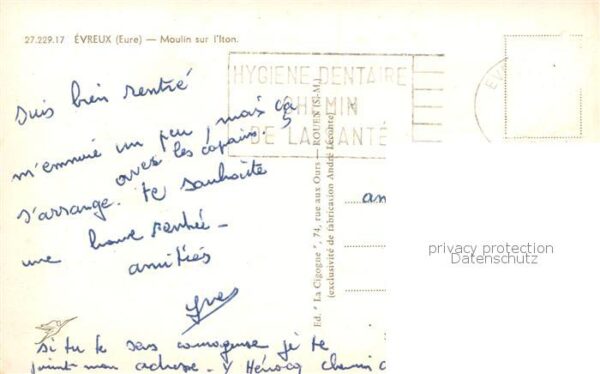 27.229.17 ÉVREUX (Eure) — Moulin sur l'Iton.
HYGIENE DENTAIRE
CHEMIN
DE LA SANTÉ
suis bien rentré
m'ennuie un peu, mais ça
avec les copains
s'arrange. te souhaite
une bonne rentrée —
amitiés
Yves
si tu te sens courageuse je te
joint mon adresse. Y
Ed. "La Cigogne", 74, rue aux Ours — ROUEN (S.-M.)
(exclusivité de fabrication André Leconte)
am
privacy protection
Datenschutz